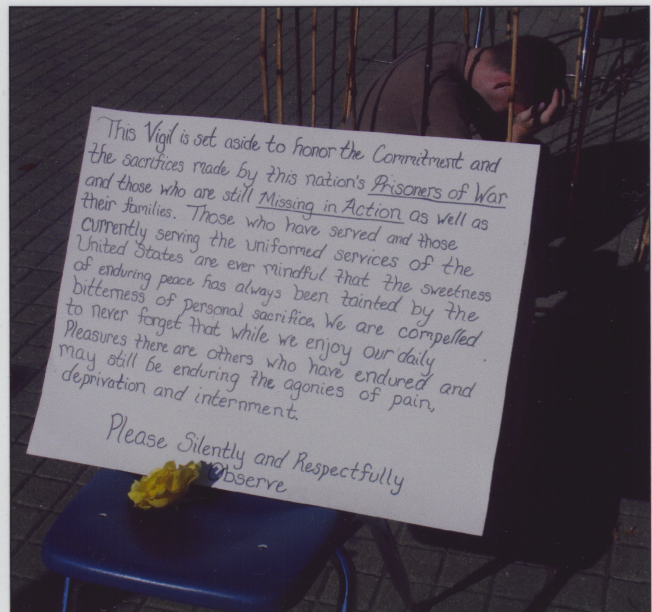 This Vigil is set aside to honor the Commitment and
the sacrifices made by this nation's Prisoners of War
and those who are still Missing in Action as well as
their families. Those who have served and those
currently serving the uniformed services of the
United States are ever mindful that the sweetness
of enduring peace has always been tainted by the
bitterness of personal sacrifice. We are compelled
to never forget that while we enjoy our daily
Pleasures there are others who have endured and
may still be enduring the agonies of pain,
deprivation and internment.
Please Silently and Respectfully
Observe